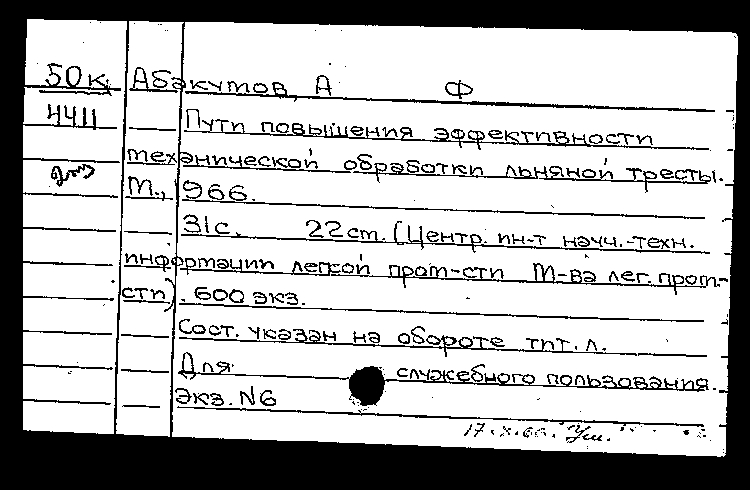 50к Абакумов, А Ф
4411
Пути повышения эффективности
механической обработки льняной тресты.
М., 1966.
31с. 22см. (Центр. ин-т науч.-техн.
информации легкой пром-сти М-ва лег. пром-
сти). 600 экз.
Сост. указан на обороте тит. л.
Для служебного пользования.
Экз. N6
17.X.66.